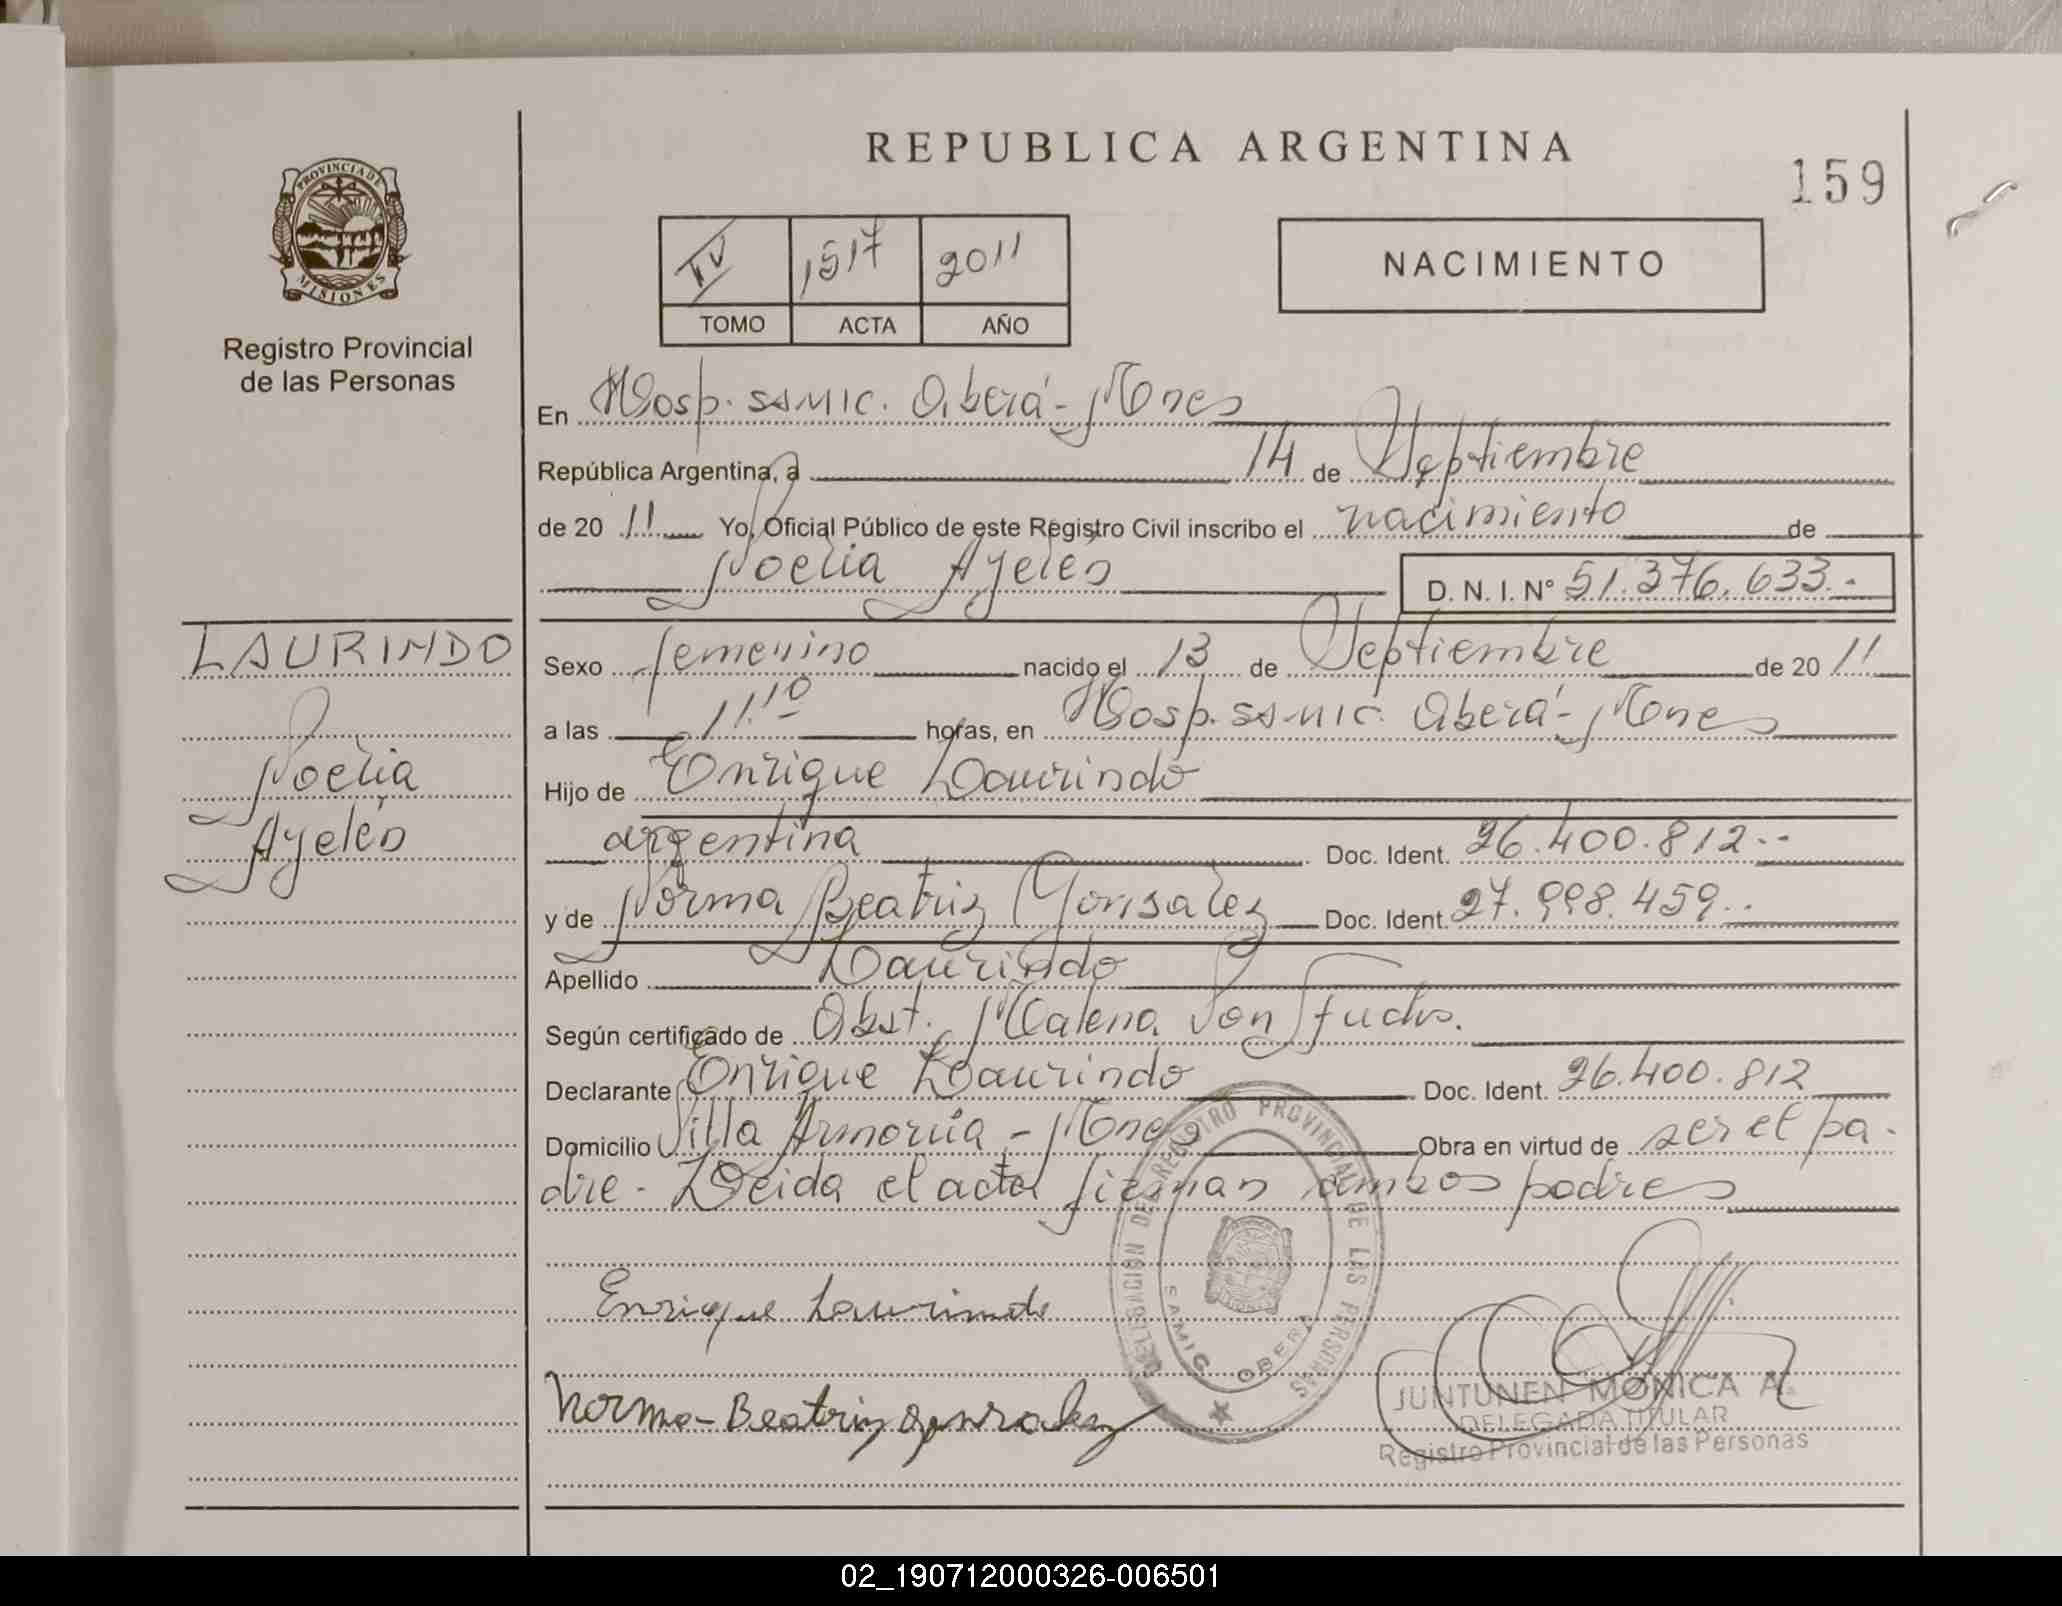 REPUBLICA ARGENTINA
159
PROVINCIA DE
MISIONES
Registro Provincial
de las Personas
IV 1517 2011
TOMO ACTA AÑO
NACIMIENTO
En Hosp. SAMIC. Oberá - Mnes
República Argentina, a 14 de Septiembre
de 20 11 Yo, Oficial Público de este Registro Civil inscribo el nacimiento de
Noelia Ayelén
D. N. I. N° 51.376.633.-
LAURINDO
Noelia
Ayelén
Sexo femenino nacido el 13 de Septiembre de 20 11
a las 11.10 horas, en Hosp. SAMIC. Oberá - Mnes
Hijo de Enrique Laurindo
argentina Doc. Ident. 26.400.812.-
y de Norma Beatriz Gonsalez Doc. Ident. 27.998.459.-
Apellido Laurindo
Según certificado de Obst. Malena Von
Declarante Enrique Laurindo Doc. Ident. 26.400.812
Domicilio Villa Armonía - Mnes Obra en virtud de ser el pa-
dre - Leida el acta firman ambos padres
Enrique Laurindo
Norma Beatriz Gonzalez
DELEGACION DEL REGISTRO PROVINCIAL DE LAS PERSONAS
SAMIC OBERA
JUNTUNEN MONICA A.
DELEGADA TITULAR
Registro Provincial de las Personas
02_190712000326-006501